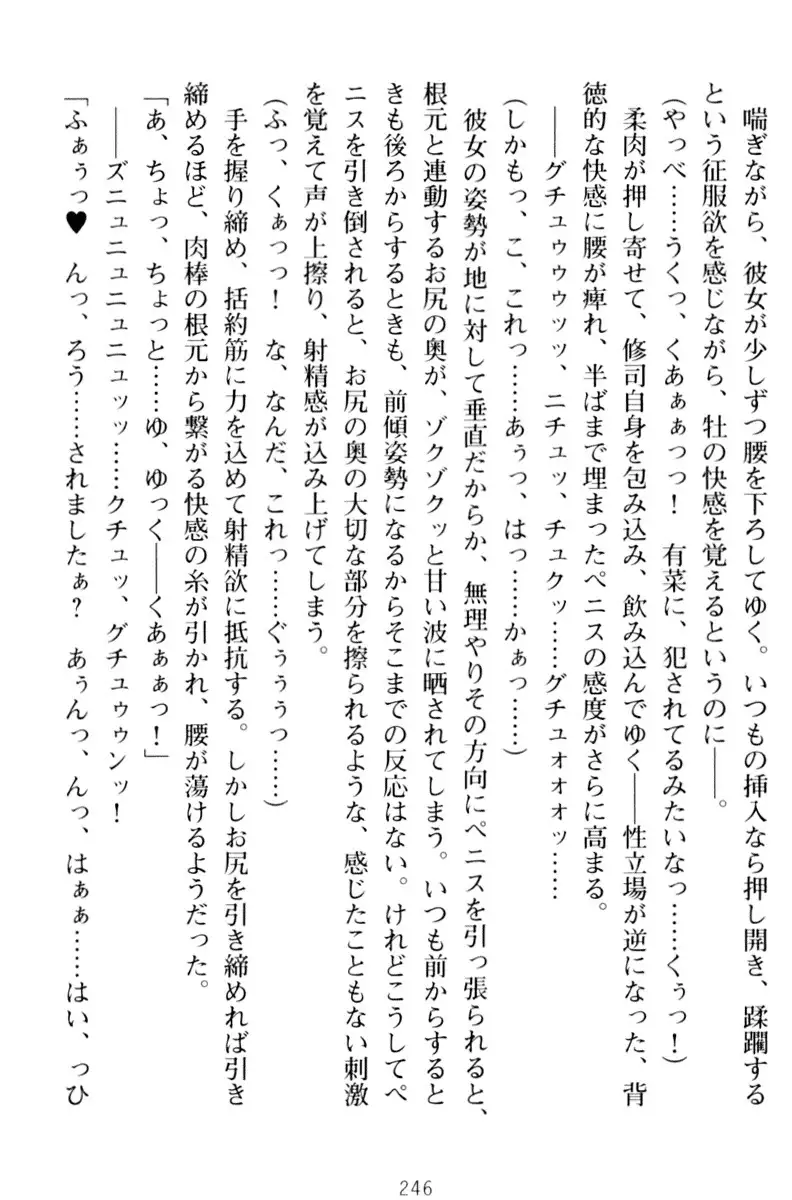 喘ぎながら、彼女が少しずつ腰を下ろしてゆく。いつもの挿入なら押し開き、蹂躙する
という征服欲を感じながら、牡の快感を覚えるというのに――。
(やっべ……うくっ、くあぁぁっっ！　有菜に、犯されてるみたいなっ……くぅっ！)
柔肉が押し寄せて、修司自身を包み込み、飲み込んでゆく――性立場が逆になった、背
徳的な快感に腰が痺れ、半ばまで埋まったペニスの感度がさらに高まる。
――グチュゥゥゥッッ、ニチュッ、チュクッ……グチュォォォッ……
(しかもっ、こ、これっ……あぅっ、はっ……かぁっ……)
彼女の姿勢が地に対して垂直だからか、無理やりその方向にペニスを引っ張られると、
根元と連動するお尻の奥が、ゾクゾクッと甘い波に晒されてしまう。いつも前からすると
きも後ろからするときも、前傾姿勢になるからそこまでの反応はない。けれどこうしてペ
ニスを引き倒されると、お尻の奥の大切な部分を擦られるような、感じたこともない刺激
を覚えて声が上擦り、射精感が込み上げてしまう。
(ふっ、くぁっっ！　な、なんだ、これっ……ぐぅぅぅっ……)
手を握り締め、括約筋に力を込めて射精欲に抵抗する。しかしお尻を引き締めれば引き
締めるほど、肉棒の根元から繋がる快感の糸が引かれ、腰が蕩けるようだった。
「あ、ちょっ、ちょっと……ゆ、ゆっく――くあぁぁっ！」
――ズニュニュニュニュッッ……クチュッ、グチュゥゥンッ！
「ふぁぅっ♥　んっ、ろう……されましたぁ？　あぅんっ、んっ、はぁぁ……はい、っひ
246